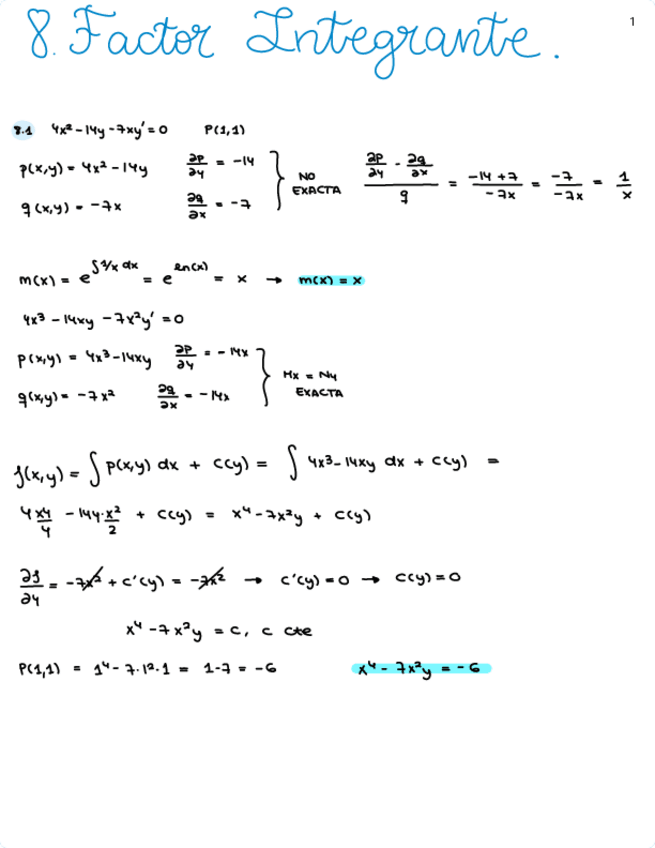 1
8. Factor Integrante.
8.1 4x² - 14y - 7xy' = 0 P(1,1)
p(x,y) = 4x² - 14y ∂p/∂y = -14
q(x,y) = -7x ∂q/∂x = -7
NO EXACTA
(∂p/∂y - ∂q/∂x)/q = (-14 + 7)/(-7x) = -7/(-7x) = 1/x
m(x) = e^(∫1/x dx) = e^(ln(x)) = x → m(x) = x
4x³ - 14xy - 7x²y' = 0
p(x,y) = 4x³ - 14xy ∂p/∂y = -14x
q(x,y) = -7x² ∂q/∂x = -14x
Mx = Ny EXACTA
f(x,y) = ∫ p(x,y) dx + c(y) = ∫ 4x³ - 14xy dx + c(y) =
4 x⁴/4 - 14y·x²/2 + c(y) = x⁴ - 7x²y + c(y)
∂f/∂y = -7x² + c'(y) = -7x² → c'(y) = 0 → c(y) = 0
x⁴ - 7x²y = c, c cte
P(1,1) = 1⁴ - 7·1²·1 = 1-7 = -6 x⁴ - 7x²y = -6